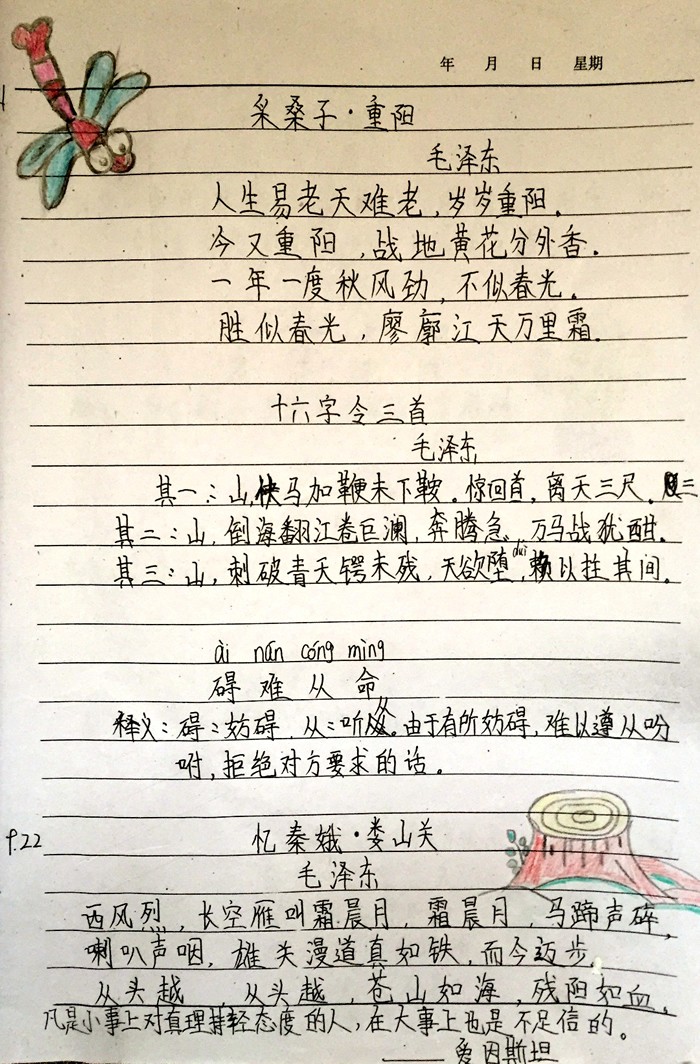 年 月 日 星期
采桑子·重阳
毛泽东
人生易老天难老,岁岁重阳。
今又重阳,战地黄花分外香。
一年一度秋风劲,不似春光。
胜似春光,廖廓江天万里霜。
十六字令三首
毛泽东
其一:山,快马加鞭未下鞍。惊回首,离天三尺三
其二:山,倒海翻江卷巨澜,奔腾急,万马战犹酣.
其三:山,刺破青天锷未残,天欲堕,赖以拄其间.
duì
ài nán cóng mìng
碍难从命
释义:碍:妨碍.从:听从。由于有所妨碍,难以遵从吩
咐,拒绝对方要求的话。
9.22
忆秦娥·娄山关
毛泽东
西风烈,长空雁叫霜晨月,霜晨月,马蹄声碎,
喇叭声咽,雄关漫道真如铁,而今迈步
从头越,从头越,苍山如海,残阳如血,
凡是小事上对真理持轻态度的人,在大事上也是不足信的。
——爱因斯坦